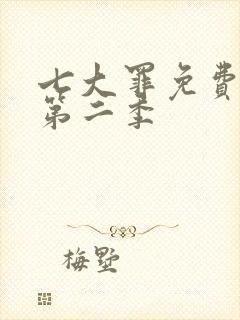 七大罪免费
第二季
梅墅